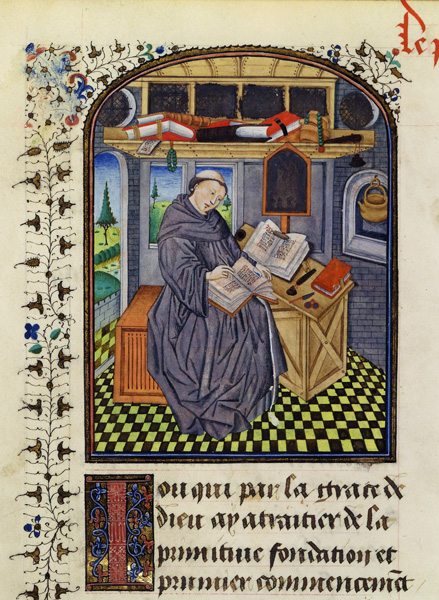 Iou qui par la grace de
dieu ay atraitier de la
primitiue fondation et
prumier commencemēt